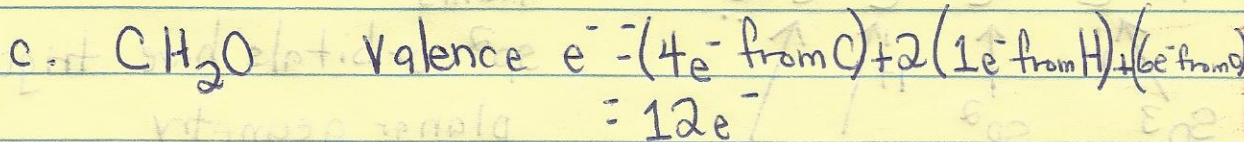 c. CH₂O Valence e⁻ = (4e⁻ from C) + 2(1e⁻ from H) + (6e⁻ from O)
= 12e⁻